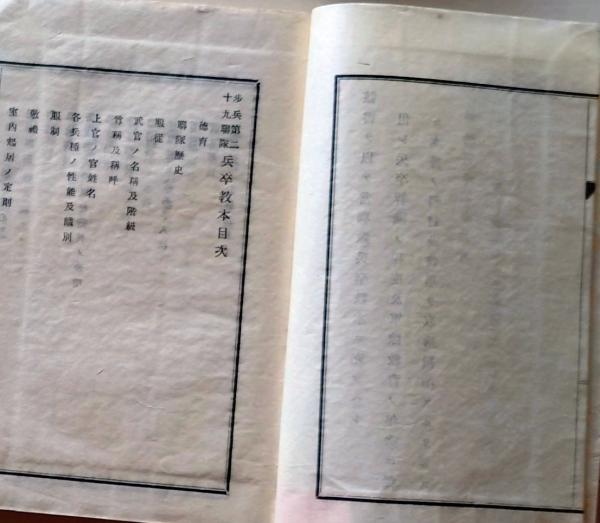 步兵第二十九聯隊 兵卒教本目次
德育
聯隊歷史
服從
武官ノ名稱及階級
官稱及稱呼
上官ノ官姓名
各兵種ノ性能及識別
服制
敬禮
室內起居ノ定則